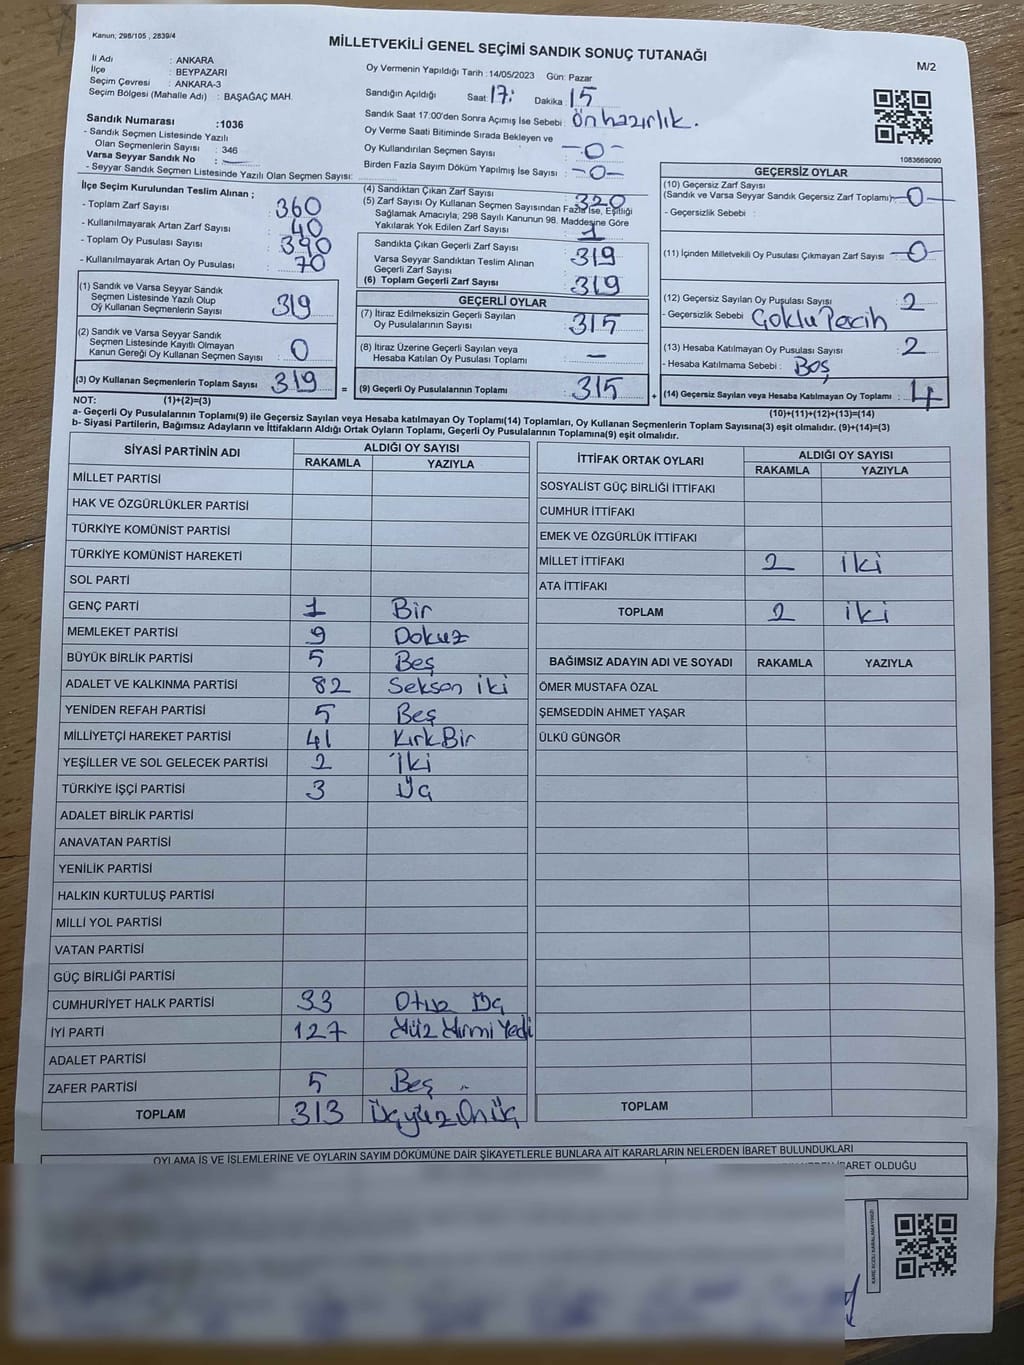 Kanun; 298/105 , 2839/4
MİLLETVEKİLİ GENEL SEÇİMİ SANDIK SONUÇ TUTANAĞI
M/2
İl Adı : ANKARA
İlçe : BEYPAZARI
Seçim Çevresi : ANKARA-3
Seçim Bölgesi (Mahalle Adı) : BAŞAĞAÇ MAH.
Sandık Numarası :1036
- Sandık Seçmen Listesinde Yazılı
Olan Seçmenlerin Sayısı : 346
Varsa Seyyar Sandık No : —
- Seyyar Sandık Seçmen Listesinde Yazılı Olan Seçmen Sayısı:
Oy Vermenin Yapıldığı Tarih :14/05/2023 Gün: Pazar
Sandığın Açıldığı Saat: 17: Dakika 15
Sandık Saat 17:00'den Sonra Açımış İse Sebebi : Ön hazırlık.
Oy Verme Saati Bitiminde Sırada Bekleyen ve
Oy Kullandırılan Seçmen Sayısı : —0—
Birden Fazla Sayım Döküm Yapılmış İse Sayısı : —0—
1083669090
İlçe Seçim Kurulundan Teslim Alınan ;
- Toplam Zarf Sayısı : 360
- Kullanılmayarak Artan Zarf Sayısı : 40
- Toplam Oy Pusulası Sayısı : 390
- Kullanılmayarak Artan Oy Pusulası : 70
(1) Sandık ve Varsa Seyyar Sandık
Seçmen Listesinde Yazılı Olup
Oy Kullanan Seçmenlerin Sayısı : 319
(2) Sandık ve Varsa Seyyar Sandık
Seçmen Listesinde Kayıtlı Olmayan
Kanun Gereği Oy Kullanan Seçmen Sayısı : 0
(3) Oy Kullanan Seçmenlerin Toplam Sayısı : 319 =
(4) Sandıktan Çıkan Zarf Sayısı : 320
(5) Zarf Sayısı Oy Kullanan Seçmen Sayısından Fazla İse, Eşitliği
Sağlamak Amacıyla; 298 Sayılı Kanunun 98. Maddesine Göre
Yakılarak Yok Edilen Zarf Sayısı : 1
Sandıkta Çıkan Geçerli Zarf Sayısı : 319
Varsa Seyyar Sandıktan Teslim Alınan
Geçerli Zarf Sayısı
(6) Toplam Geçerli Zarf Sayısı : 319
GEÇERLİ OYLAR
(7) İtiraz Edilmeksizin Geçerli Sayılan
Oy Pusulalarının Sayısı : 315
(8) İtiraz Üzerine Geçerli Sayılan veya
Hesaba Katılan Oy Pusulası Toplamı : —
(9) Geçerli Oy Pusulalarının Toplamı : 315 +
GEÇERSİZ OYLAR
(10) Geçersiz Zarf Sayısı
(Sandık ve Varsa Seyyar Sandık Geçersiz Zarf Toplamı) —0—
- Geçersizlik Sebebi :
(11) İçinden Milletvekili Oy Pusulası Çıkmayan Zarf Sayısı : —0—
(12) Geçersiz Sayılan Oy Pusulası Sayısı : 2
- Geçersizlik Sebebi : Çoklu Percih
(13) Hesaba Katılmayan Oy Pusulası Sayısı : 2
- Hesaba Katılmama Sebebi : Boş
(14) Geçersiz Sayılan veya Hesaba Katılmayan Oy Toplamı : 4
NOT: (1)+(2)=(3)
(10)+(11)+(12)+(13)=(14)
a- Geçerli Oy Pusulalarının Toplamı(9) ile Geçersiz Sayılan veya Hesaba katılmayan Oy Toplamı(14) Toplamları, Oy Kullanan Seçmenlerin Toplam Sayısına(3) eşit olmalıdır. (9)+(14)=(3)
b- Siyasi Partilerin, Bağımsız Adayların ve İttifakların Aldığı Ortak Oyların Toplamı, Geçerli Oy Pusulalarının Toplamına(9) eşit olmalıdır.
SİYASİ PARTİNİN ADI ALDIĞI OY SAYISI
RAKAMLA YAZIYLA
MİLLET PARTİSİ
HAK VE ÖZGÜRLÜKLER PARTİSİ
TÜRKİYE KOMÜNİST PARTİSİ
TÜRKİYE KOMÜNİST HAREKETİ
SOL PARTİ
GENÇ PARTİ 1 Bir
MEMLEKET PARTİSİ 9 Dokuz
BÜYÜK BİRLİK PARTİSİ 5 Beş
ADALET VE KALKINMA PARTİSİ 82 Seksen iki
YENİDEN REFAH PARTİSİ 5 Beş
MİLLİYETÇİ HAREKET PARTİSİ 41 Kırk Bir
YEŞİLLER VE SOL GELECEK PARTİSİ 2 İki
TÜRKİYE İŞÇİ PARTİSİ 3 Üç
ADALET BİRLİK PARTİSİ
ANAVATAN PARTİSİ
YENİLİK PARTİSİ
HALKIN KURTULUŞ PARTİSİ
MİLLİ YOL PARTİSİ
VATAN PARTİSİ
GÜÇ BİRLİĞİ PARTİSİ
CUMHURİYET HALK PARTİSİ 33 Otuz Üç
İYİ PARTİ 127 Yüz Yirmi Yedi
ADALET PARTİSİ
ZAFER PARTİSİ 5 Beş
TOPLAM 313 Üçyüz On Üç
İTTİFAK ORTAK OYLARI ALDIĞI OY SAYISI
RAKAMLA YAZIYLA
SOSYALİST GÜÇ BİRLİĞİ İTTİFAKI
CUMHUR İTTİFAKI
EMEK VE ÖZGÜRLÜK İTTİFAKI
MİLLET İTTİFAKI 2 iki
ATA İTTİFAKI
TOPLAM 2 iki
BAĞIMSIZ ADAYIN ADI VE SOYADI RAKAMLA YAZIYLA
ÖMER MUSTAFA ÖZAL
ŞEMSEDDİN AHMET YAŞAR
ÜLKÜ GÜNGÖR
TOPLAM
OYLAMA İŞ VE İŞLEMLERİNE VE OYLARIN SAYIM DÖKÜMÜNE DAİR ŞİKAYETLERLE BUNLARA AİT KARARLARIN NELERDEN İBARET BULUNDUKLARI
İBARET OLDUĞU
KARE KODU KARALAMAYINIZ!